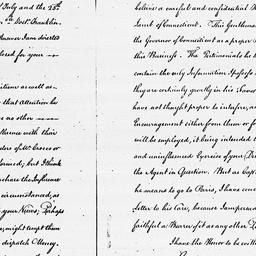 of July and the 28th
th Doct. Franklin.
Answer I am directed
lored for your
itions as well as
that attention he
as no other
fluence with their
ders of Mr Greece or
formed; but I think
urchase the Influence
circumstanced, as
your News; Perhaps
er, might tempt them
dispatch Money.
believe a careful and confidential M
Land of Connecticut. This Gentleman
the Governor of Connecticut as a proper
this Business. The Testimonials he b
contain the only Information I possess
they are certainly greatly in his Favor
have not thought proper to interfere, an
Encouragement either from them or f
will be employed, it being intended t
and uninfluenced Exercise of your Dis
the Agent in Question. But as Capt
he meant to go to Paris, I have conce
letter to his Care, because I am persuad
faithful a Bearer of it as any other
I have the Honor to be with